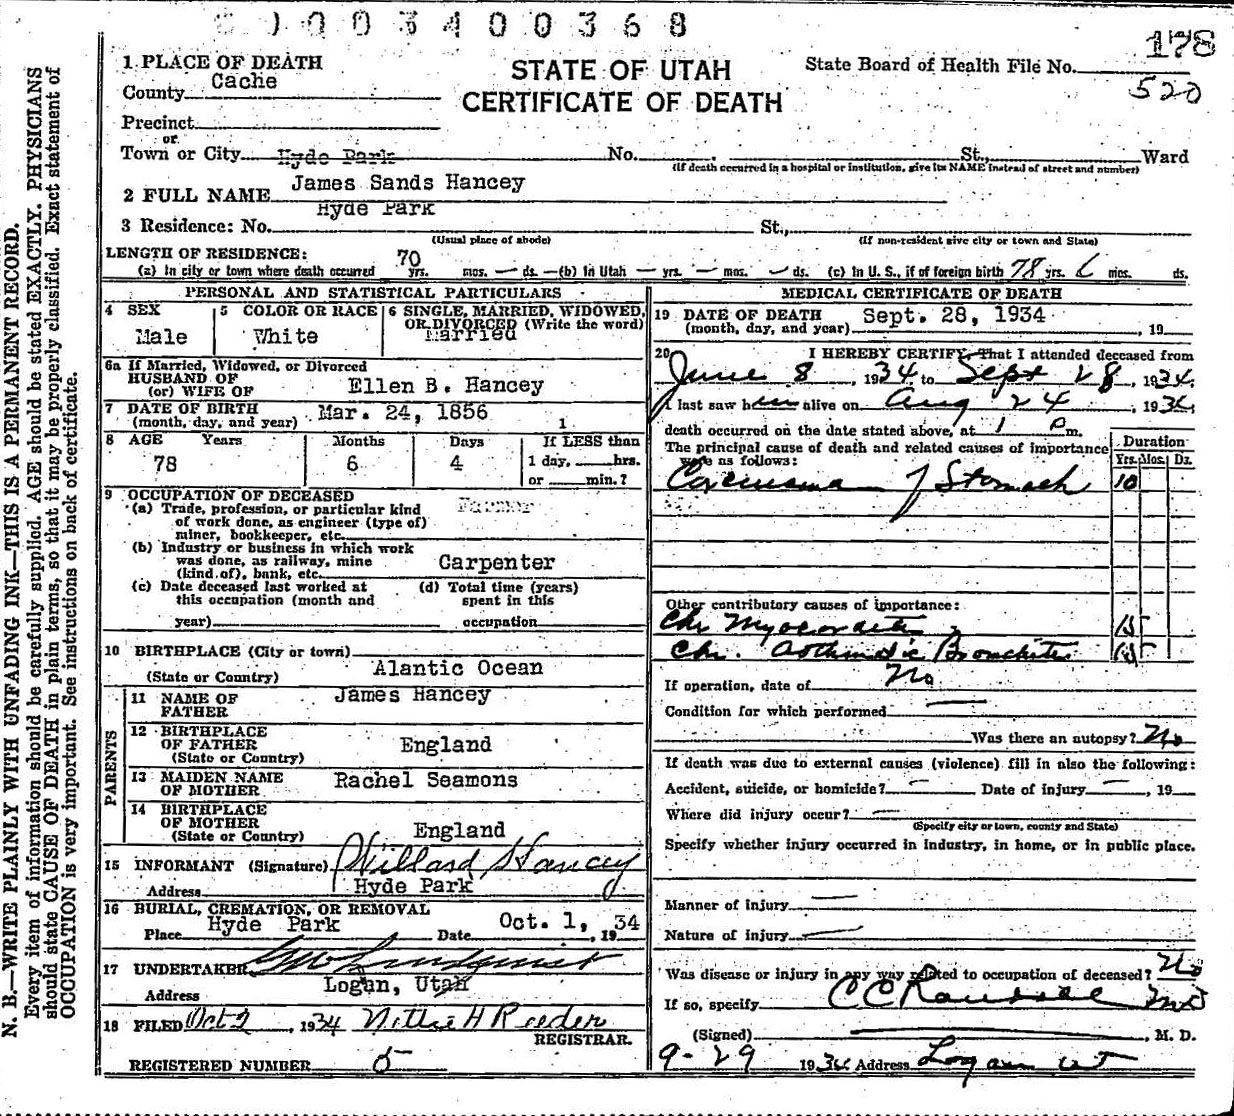 003400368
178
1 PLACE OF DEATH
STATE OF UTAH
State Board of Health File No.
County Cache
CERTIFICATE OF DEATH
520
Precinct
or
Town or City Hyde Park No. St., Ward
(If death occurred in a hospital or institution, give its NAME instead of street and number)
2 FULL NAME James Sands Hancey
Hyde Park
3 Residence: No. St.,
(Usual place of abode) (If non-resident give city or town and State)
LENGTH OF RESIDENCE:
(a) In city or town where death occurred 70 yrs. mos. — ds. —(b) In Utah — yrs. — mos. — ds. (c) In U. S., if of foreign birth 78 yrs. 6 mos. ds.
PERSONAL AND STATISTICAL PARTICULARS
4 SEX
Male
5 COLOR OR RACE
White
6 SINGLE, MARRIED, WIDOWED,
OR DIVORCED (Write the word)
Married
6a If Married, Widowed, or Divorced
HUSBAND OF
(or) WIFE OF Ellen B. Hancey
7 DATE OF BIRTH
(month, day, and year) Mar. 24, 1856
1
8 AGE Years
78
Months
6
Days
4
If LESS than
1 day, hrs.
or min.?
9 OCCUPATION OF DECEASED
(a) Trade, profession, or particular kind
of work done, as engineer (type of)
miner, bookkeeper, etc.
Farmer
(b) Industry or business in which work
was done, as railway, mine
(kind of), bank, etc. Carpenter
(c) Date deceased last worked at
this occupation (month and
year)
(d) Total time (years)
spent in this
occupation
10 BIRTHPLACE (City or town)
(State or Country) Alantic Ocean
PARENTS
11 NAME OF
FATHER James Hancey
12 BIRTHPLACE
OF FATHER England
(State or Country)
13 MAIDEN NAME
OF MOTHER Rachel Seamons
14 BIRTHPLACE
OF MOTHER
(State or Country) England
15 INFORMANT (Signature) Willard Hancey
Address Hyde Park
16 BURIAL, CREMATION, OR REMOVAL
Place Hyde Park Date Oct. 1, 1934
17 UNDERTAKER G W Lindquist
Address Logan, Utah
18 FILED Oct 2, 1934 Nettie H Reeder
REGISTRAR.
REGISTERED NUMBER 5
MEDICAL CERTIFICATE OF DEATH
19 DATE OF DEATH Sept. 28, 1934
(month, day, and year) , 19
20 I HEREBY CERTIFY, That I attended deceased from
June 8, 1934, to Sept 28, 1934.
I last saw him alive on Aug 24, 1934,
death occurred on the date stated above, at 1 P m.
The principal cause of death and related causes of importance
were as follows:
Duration
Yrs. Mos. Ds.
Carcinoma of Stomach 10
Other contributory causes of importance:
Chr Myocarditis 15
Chr. Asthmatic Bronchitis
If operation, date of No
Condition for which performed —
Was there an autopsy? No
If death was due to external causes (violence) fill in also the following:
Accident, suicide, or homicide? — Date of injury —, 19
Where did injury occur? —
(Specify city or town, county and State)
Specify whether injury occurred in industry, in home, or in public place.
Manner of injury —
Nature of injury —
Was disease or injury in any way related to occupation of deceased? No
If so, specify
C C Randall MD
(Signed) , M. D.
9-29 1934 Address Logan Ut
N. B.—WRITE PLAINLY WITH UNFADING INK—THIS IS A PERMANENT RECORD.
Every item of information should be carefully supplied. AGE should be stated EXACTLY. PHYSICIANS
should state CAUSE OF DEATH in plain terms, so that it may be properly classified. Exact statement of
OCCUPATION is very important. See instructions on back of certificate.